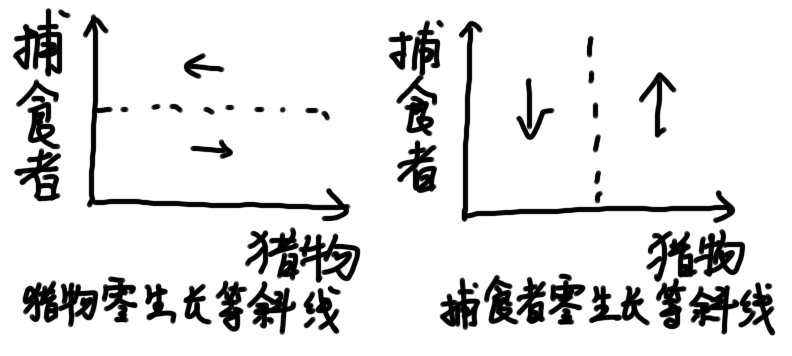 捕食者
猎物
猎物零生长等斜线
捕食者
猎物
捕食者零生长等斜线